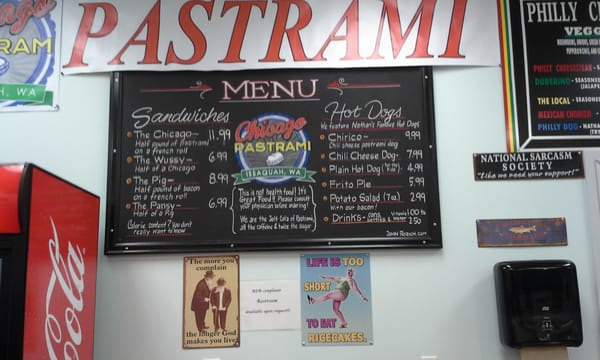 Chicago
PASTRAMI
, WA
PASTRAMI
MENU
Sandwiches
The Chicago - 11.99
Half pound of pastrami
on a french roll
The Wussy - 6.99
Half of a Chicago
The Pig - 8.99
Half pound of bacon
on a french roll
The Pansy - 6.99
Half of a Pig
Calorie content? You don't
really want to know
Chicago
PASTRAMI
ISSAQUAH, WA
This is not health food! It's
Great Food!! Please consult
your physician before ordering!
We are the Jolt Cola of Pastrami,
all the caffeine & twice the sugar
Hot Dogs
We feature Nathan's Famous Hot Dogs
Chirico - 9.99
Chili cheese pastrami dog
Chili Cheese Dog - 7.99
Plain Hot Dog 4.99
Frito Pie 5.99
Potato Salad (7oz.) 2.99
With our bacon!
Drinks - 1.00 to
2.50
PHILLY
VEGG
PHILLY CHEESESTEAK
DUDERINO - SEASONE
THE LOCAL - SEASONE
MEXICAN CHORIZO
PHILLY DOG
NATIONAL SARCASM
SOCIETY
"Like we need your support!"
Coca-Cola
The more you
complain
the longer God
makes you live
NEW complaint
Restroom
available upon request!
LIFE IS TOO
SHORT
TO EAT
RICECAKES.